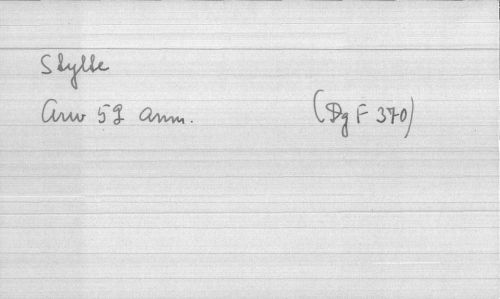 Stylte
Arw 59 Anm. (DgF 370)